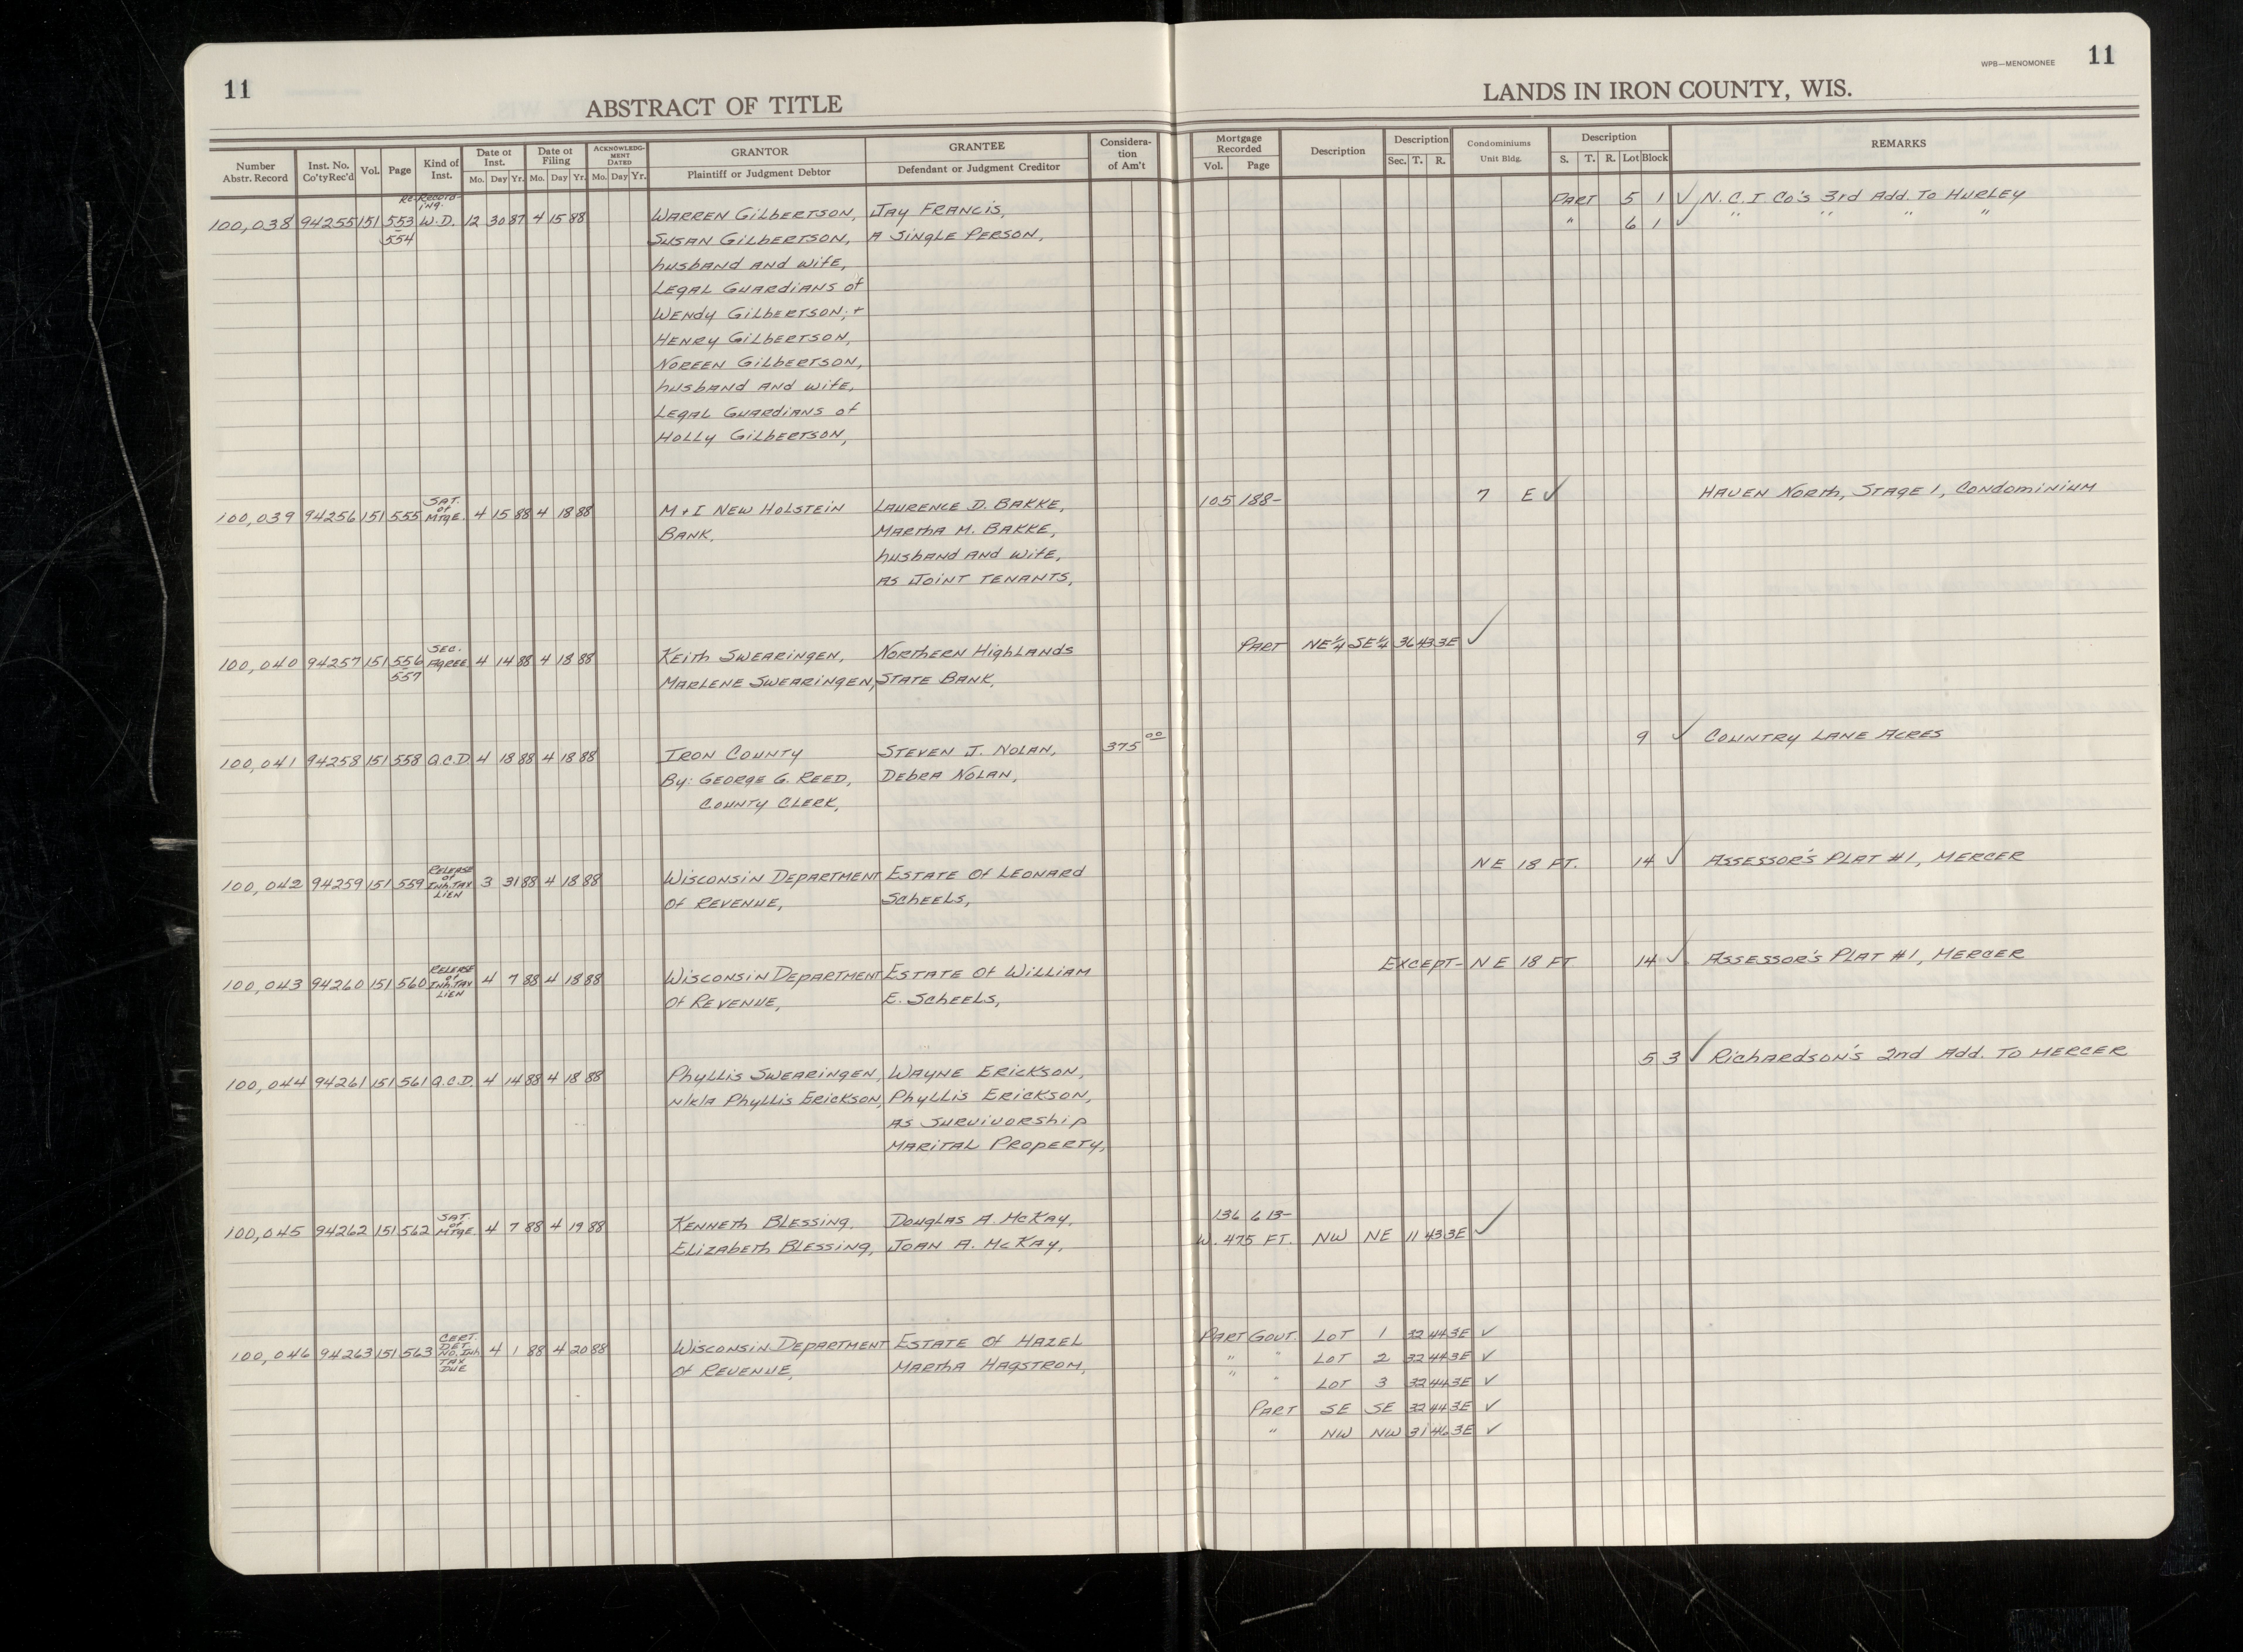 11
ABSTRACT OF TITLE
Number Abstr. Record
Inst. No. Co'ty Rec'd
Vol.
Page
Kind of Inst.
Date of Inst.
Mo. Day Yr.
Date of Filing
Mo. Day Yr.
ACKNOWLEDGMENT DATED
Mo. Day Yr.
GRANTOR
Plaintiff or Judgment Debtor
GRANTEE
Defendant or Judgment Creditor
Considera-
tion
of Am't
WPB—MENOMONEE
11
LANDS IN IRON COUNTY, WIS.
Mortgage Recorded
Vol. Page
Description
Description
Sec. T. R.
Condominiums
Unit Bldg.
Description
S. T. R. Lot Block
REMARKS
Re-Record-
ing.
100,038 94255 151 553 W.D. 12 30 87 4 15 88 Warren Gilbertson, Jay Francis, Part 5 1 ✓ N.C.I Co's 3rd Add. To Hurley
554 Susan Gilbertson, A Single Person, " 6 1 ✓ " " " "
husband and wife,
Legal Guardians of
Wendy Gilbertson; +
Henry Gilbertson,
Noreen Gilbertson,
husband and wife,
Legal Guardians of
Holly Gilbertson,
100,039 94256 151 555 Sat. of Mtge. 4 15 88 4 18 88 M + I New Holstein Laurence D. Bakke, 105 188- 7 E ✓ Haven North, Stage 1, Condominium
Bank, Martha M. Bakke,
husband and wife,
as Joint Tenants,
100,040 94257 151 556 Sec. Agree 4 14 88 4 18 88 Keith Swearingen, Northern Highlands Part NE¼ SE¼ 36 43 3E ✓
557 Marlene Swearingen, State Bank,
100,041 94258 151 558 Q.C.D. 4 18 88 4 18 88 Iron County Steven J. Nolan, 375 00 9 ✓ Country Lane Acres
By: George G. Reed, Debra Nolan,
County Clerk,
100,042 94259 151 559 Release of Inh. Tax Lien 3 31 88 4 18 88 Wisconsin Department Estate of Leonard NE 18 FT. 14 ✓ Assessor's Plat #1, Mercer
of Revenue, Scheels,
100,043 94260 151 560 Release of Inh. Tax Lien 4 7 88 4 18 88 Wisconsin Department Estate of William Except- NE 18 FT 14 ✓ Assessor's Plat #1, Mercer
of Revenue, E. Scheels,
100,044 94261 151 561 Q.C.D. 4 14 88 4 18 88 Phyllis Swearingen, Wayne Erickson, 5 3 ✓ Richardson's 2nd Add. To Mercer
n/k/a Phyllis Erickson, Phyllis Erickson,
as Survivorship
Marital Property,
100,045 94262 151 562 Sat. of Mtge 4 7 88 4 19 88 Kenneth Blessing, Douglas A. McKay, 136 613-
Elizabeth Blessing, Joan A. McKay, W. 475 FT. NW NE 11 43 3E ✓
100,046 94263 151 563 Cert. Det. No. Inh. Tax Due 4 1 88 4 20 88 Wisconsin Department Estate of Hazel Part Govt. Lot 1 32 44 3E ✓
of Revenue, Martha Hagstrom, " " Lot 2 32 44 3E ✓
" " Lot 3 32 44 3E ✓
Part SE SE 32 44 3E ✓
" NW NW 31 46 3E ✓